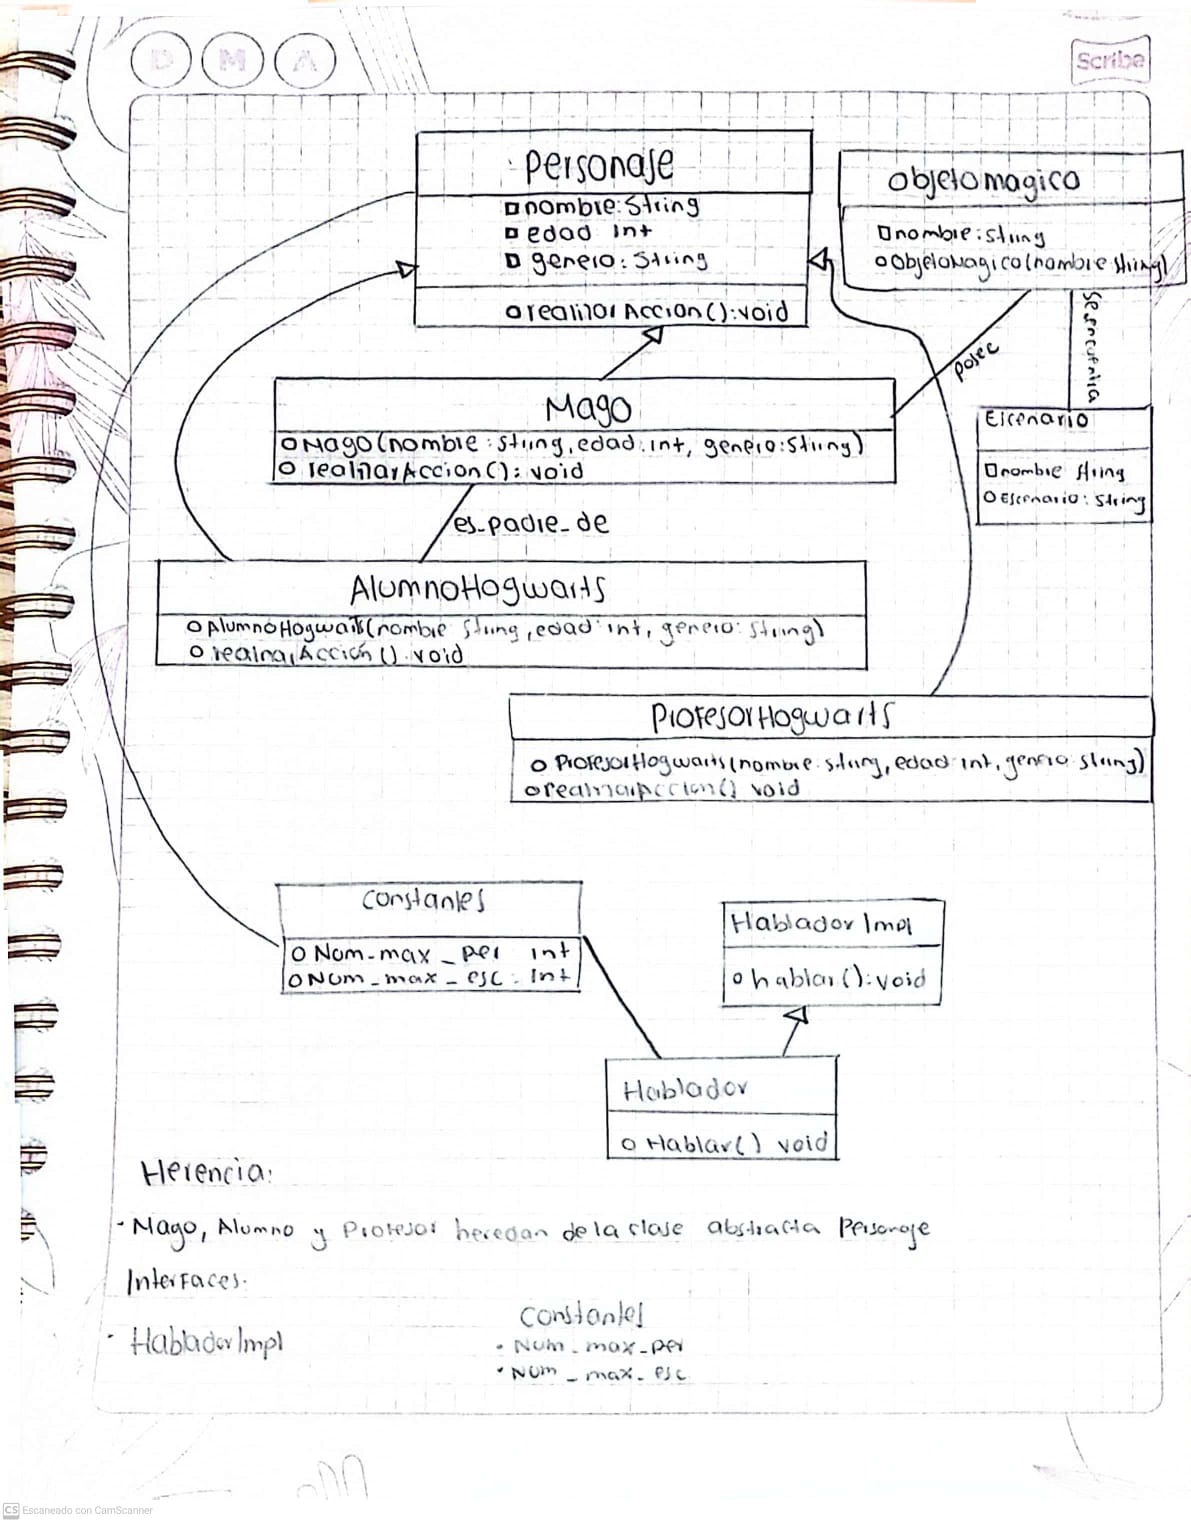 D M A
Scribe
Personaje
nombre: String
edad Int
genero: String
realizarAccion(): void
objetomagico
nombre: string
ObjetoMagico(nombre string)
posee
se encuentra
Mago
Mago(nombre: String, edad: int, genero: String)
realizarAccion(): void
Escenario
nombre string
Escenario: string
es_padre_de
AlumnoHogwarts
AlumnoHogwarts(nombre String, edad: int, genero: String)
realizarAcción(). void
ProfesorHogwarts
ProfesorHogwarts(nombre: string, edad: int, genero string)
realizarAccion() void
Constantes
Nom_max_per int
Num_max_esc: Int
HabladorImpl
hablar(): void
Hablador
Hablar() void
Herencia:
· Mago, Alumno y Profesor heredan de la clase abstracta Personaje
Interfaces:
· HabladorImpl
Constantes
· Num_max_per
· Num_max_esc
CS Escaneado con CamScanner